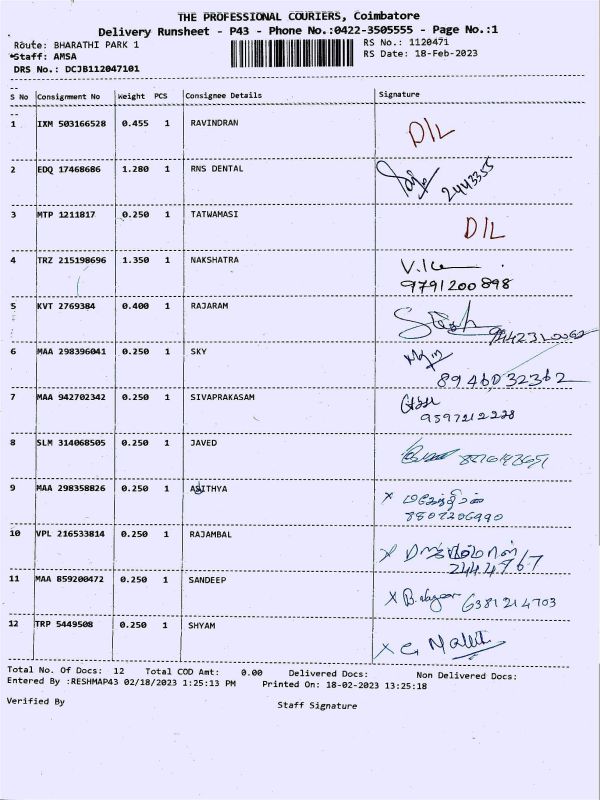 THE PROFESSIONAL COURIERS, Coimbatore
Delivery Runsheet - P43 - Phone No.:0422-3505555 - Page No.:1
Route: BHARATHI PARK 1 RS No.: 1120471
*Staff: AMSA RS Date: 18-Feb-2023
DRS No.: DCJB112047101
S No Consignment No Weight PCS Consignee Details Signature
1 IXM 503166528 0.455 1 RAVINDRAN D/L
2 EDQ 17468686 1.280 1 RNS DENTAL 2443355
3 MTP 1211817 0.250 1 TATWAMASI D/L
4 TRZ 215198696 1.350 1 NAKSHATRA
9791200898
5 KVT 2769384 0.400 1 RAJARAM
6 MAA 298396041 0.250 1 SKY
8946032362
7 MAA 942702342 0.250 1 SIVAPRAKASAM
9597212228
8 SLM 314068505 0.250 1 JAVED
9 MAA 298358826 0.250 1 ASITHYA x
8807206990
10 VPL 216533814 0.250 1 RAJAMBAL x
2444767
11 MAA 859200472 0.250 1 SANDEEP x 6381214703
12 TRP 5449508 0.250 1 SHYAM x
Total No. Of Docs: 12 Total COD Amt: 0.00 Delivered Docs: Non Delivered Docs:
Entered By :RESHMAP43 02/18/2023 1:25:13 PM Printed On: 18-02-2023 13:25:18
Verified By Staff Signature